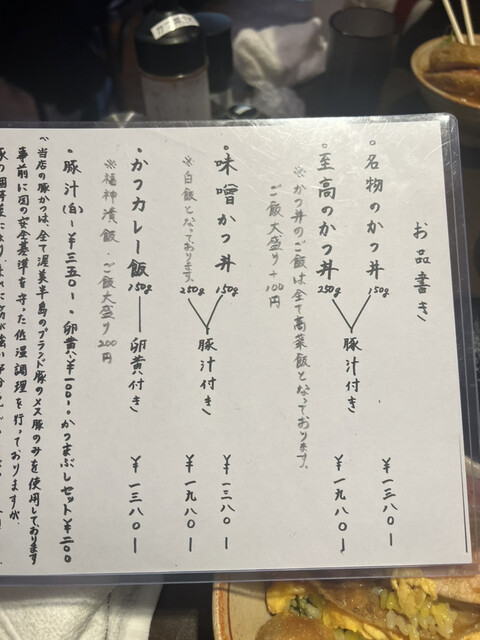 お品書き
。名物のかつ丼 150g
。至高のかつ丼 250g
豚汁付き
¥一三八〇ー
¥一九八〇ー
※かつ丼のご飯は全て高菜飯となっております。
ご飯大盛り+100円
。味噌かつ丼 150g
250g
豚汁付き
¥一三八〇ー
¥一九八〇ー
※白飯となっております。
・かつカレー飯 150g ー 卵黄付き ¥一三八〇ー
※福神漬飯・ご飯大盛り200円
・豚汁(白)ー¥三五〇ー。卵黄¥100ー。かつまぶしセット¥二〇〇
当店の豚かつは、全て渥美半島のブランド豚のメス豚のみを使用しております
事前に国の安全基準を守った低温調理を行っておりますが、